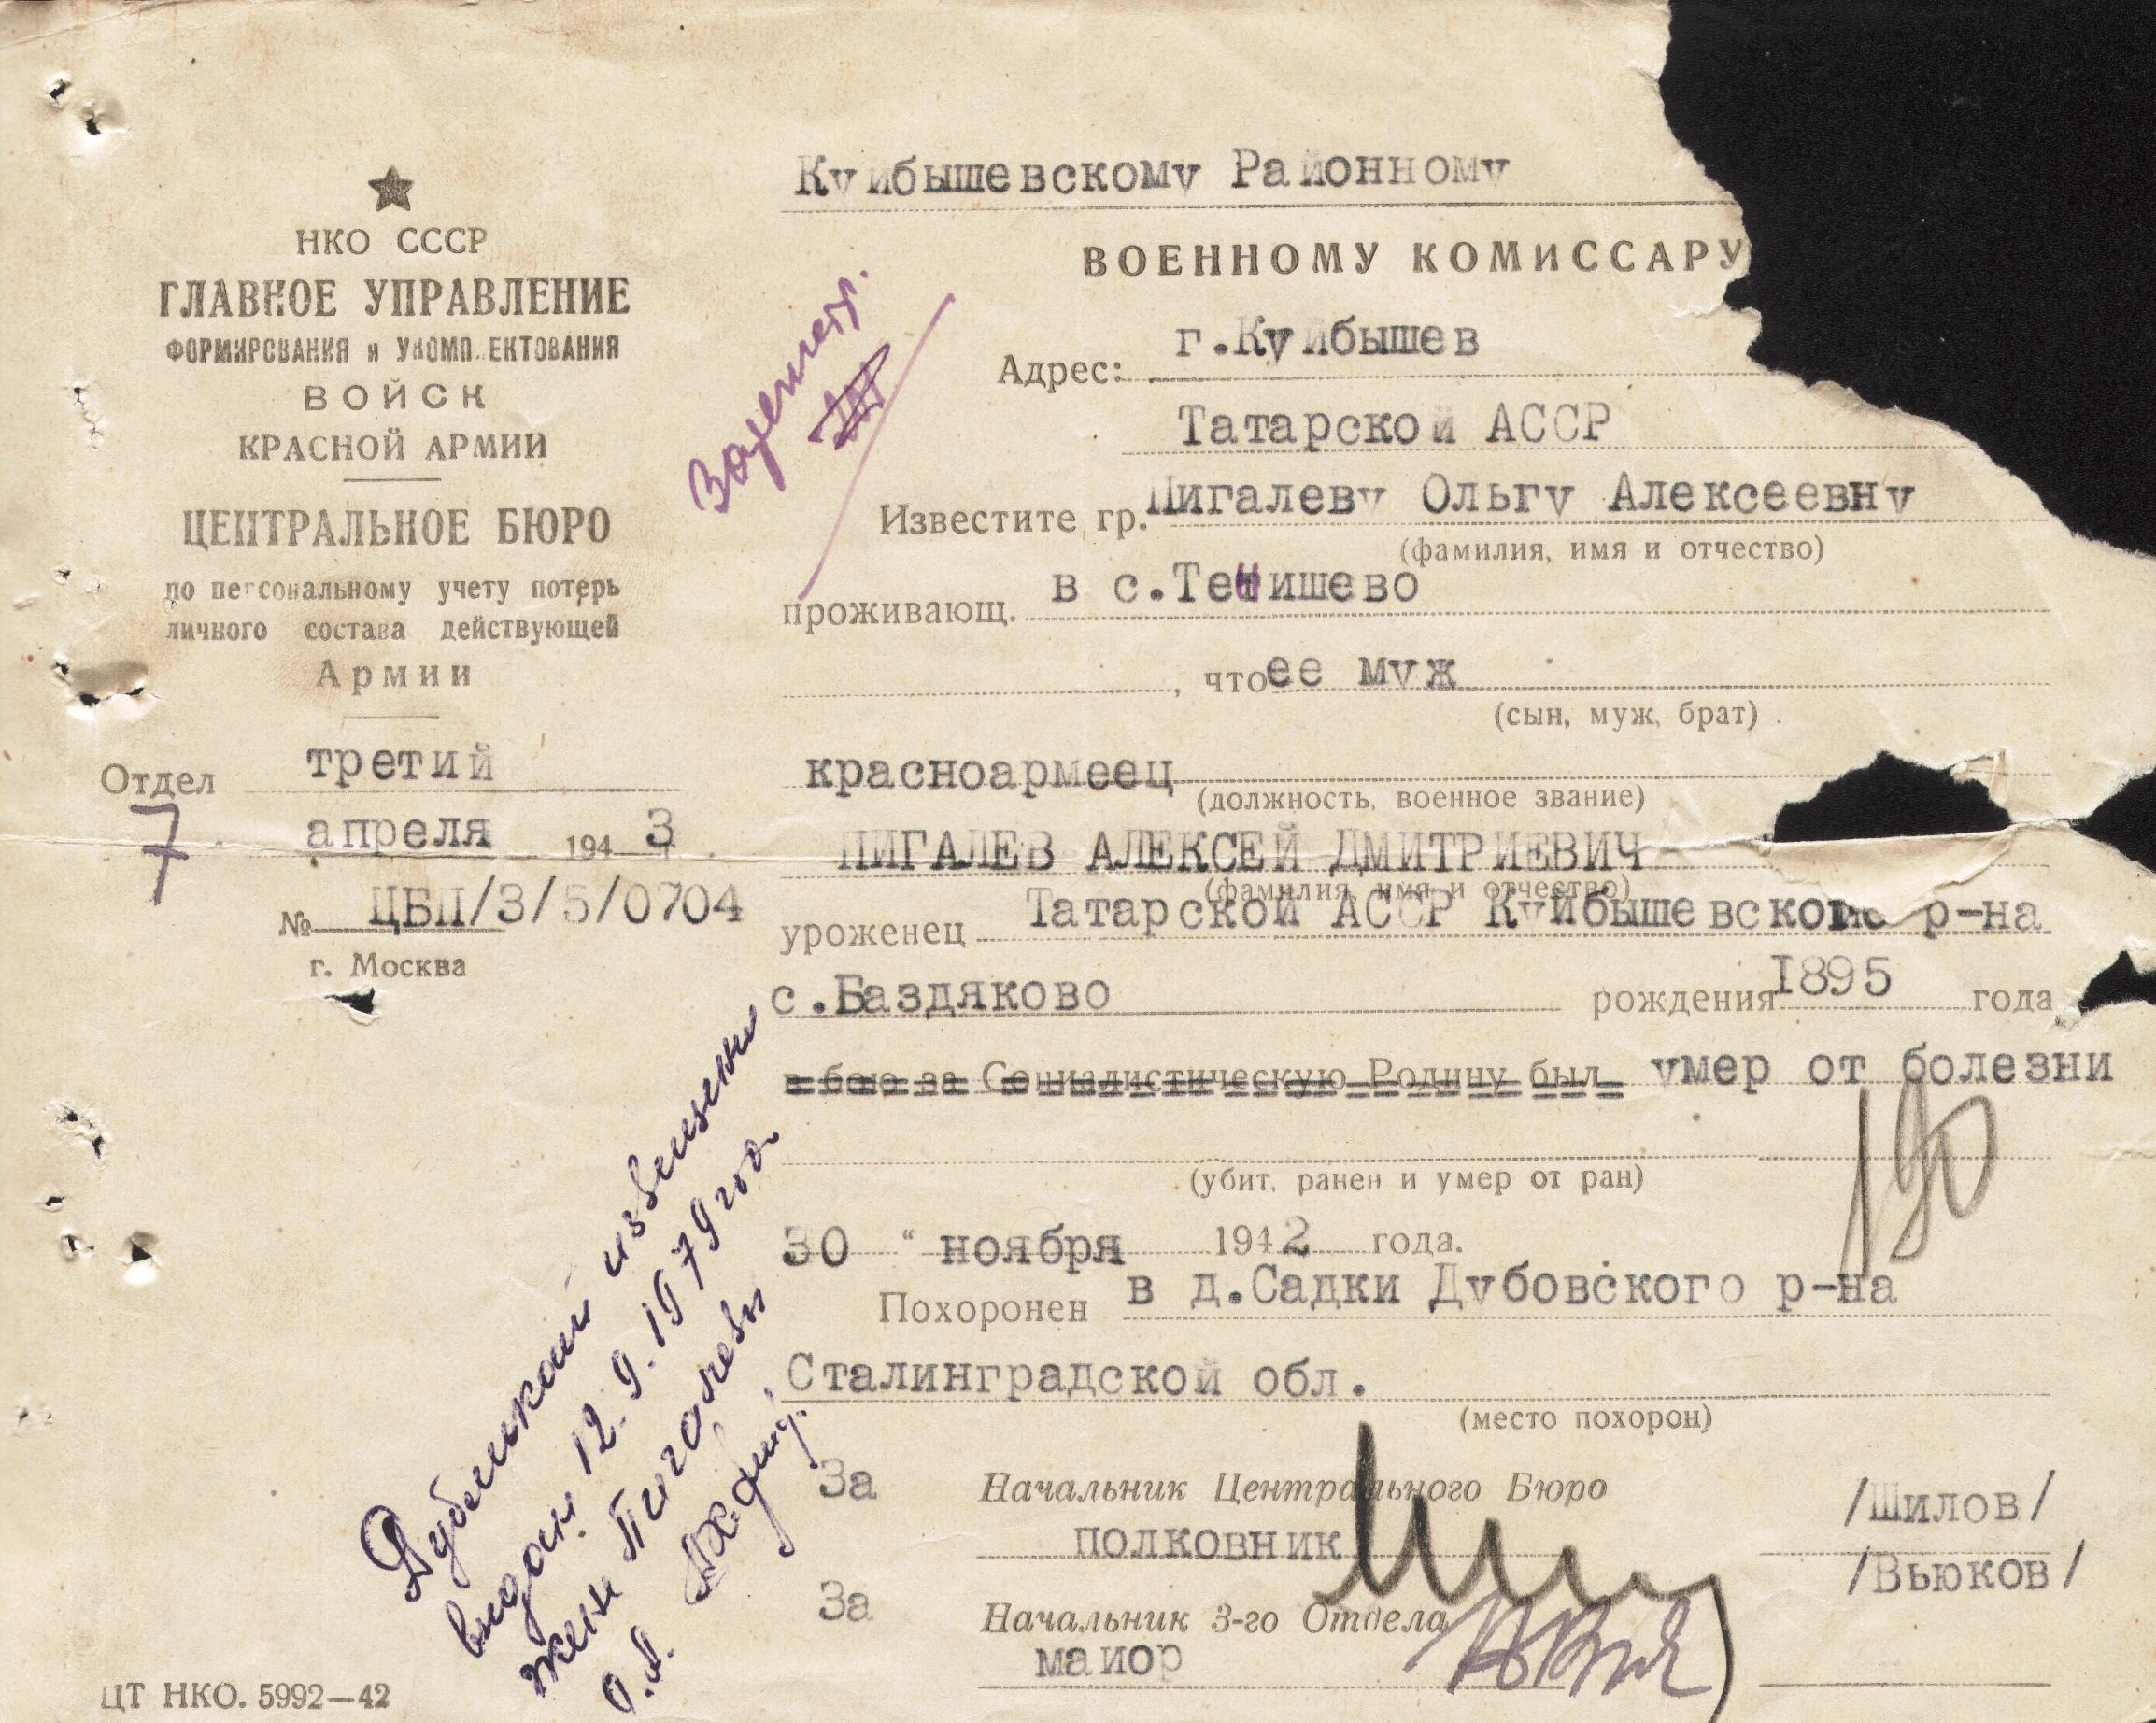 НКО СССР
ГЛАВНОЕ УПРАВЛЕНИЕ
ФОРМИРОВАНИЯ и УКОМПЛЕКТОВАНИЯ
ВОЙСК
КРАСНОЙ АРМИИ
ЦЕНТРАЛЬНОЕ БЮРО
по персональному учету потерь
личного состава действующей
Армии
Отдел третий
7 апреля 1943
№ ЦБП/3/5/0704
г. Москва
Куйбышевскому Районному
ВОЕННОМУ КОМИССАРУ
Адрес: г.Куйбышев
Татарской АССР
Известите гр. Пигалеву Ольгу Алексеевну
(фамилия, имя и отчество)
проживающ. в с.Тенишево
, что ее муж
(сын, муж, брат)
красноармеец
(должность, военное звание)
ПИГАЛЕВ АЛЕКСЕЙ ДМИТРИЕВИЧ
(фамилия, имя и отчество)
уроженец Татарской АССР Куйбышевского р-на
с.Баздяково рождения 1895 года
в бою за Социалистическую Родину был умер от болезни
(убит, ранен и умер от ран)
190
30 " ноября 1942 года.
Похоронен в д.Садки Дубовского р-на
Сталинградской обл.
(место похорон)
За Начальник Центрального Бюро
полковник /Шилов/
/Вьюков/
За Начальник 3-го Отдела
майор
Дубликат извещения
выдан 12.9.1979 года
жене Пигалевы
О.А.
ЦТ НКО. 5992—42